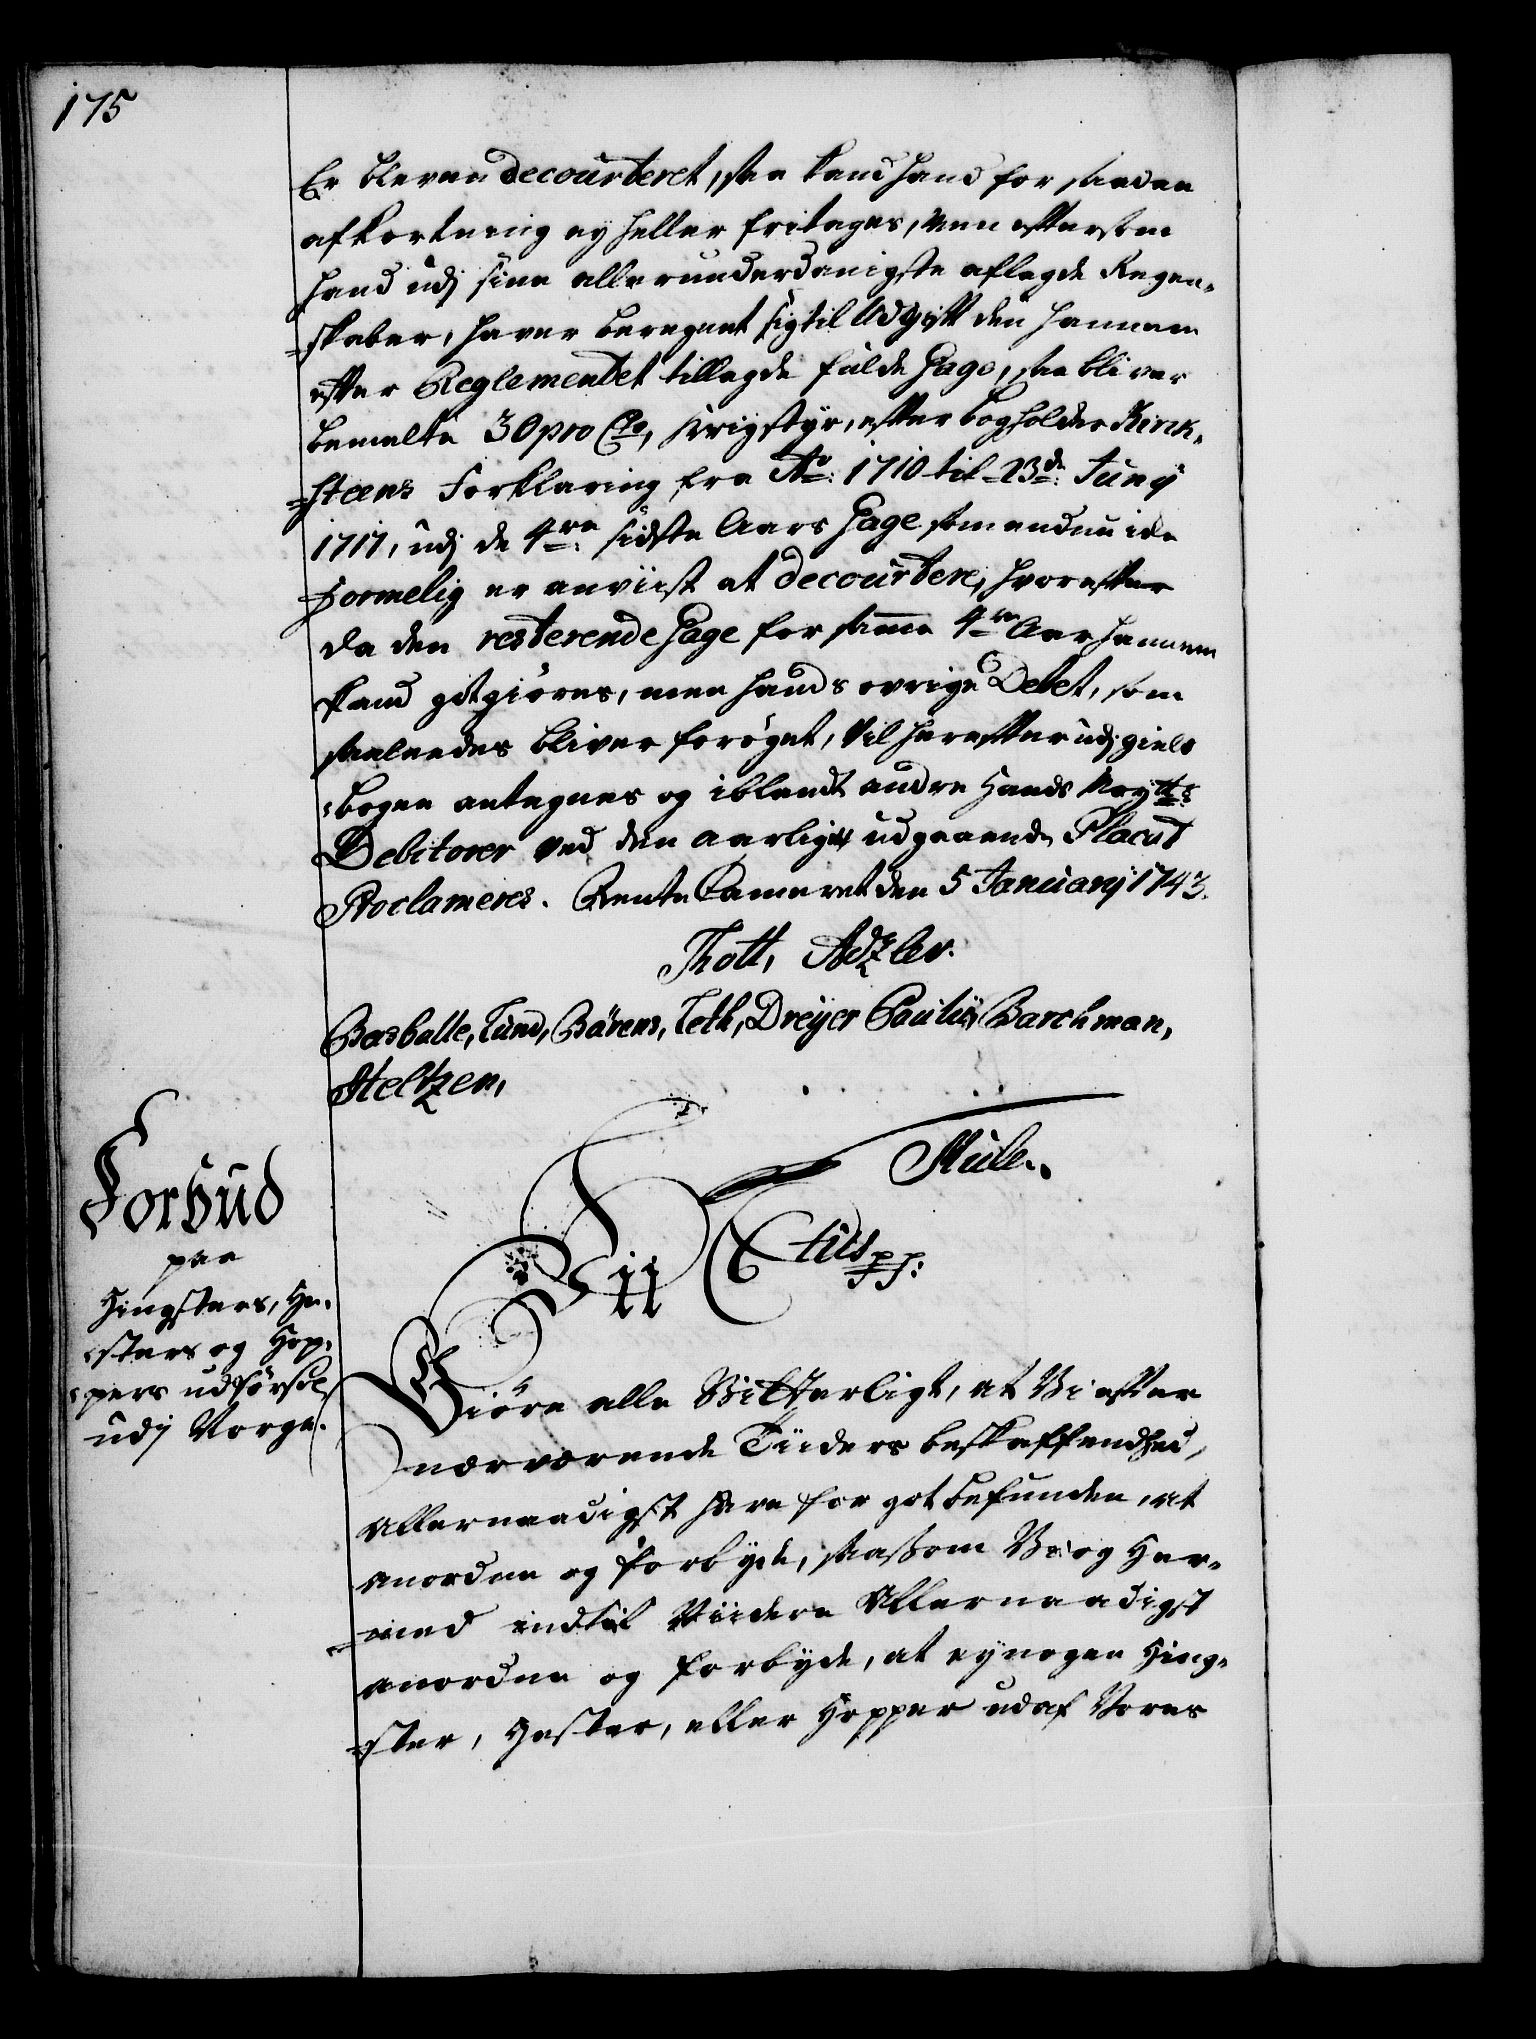 175
Er bleven decourteret, saa kand hand for saadan
afkortning ey heller fritages, men eftersom
hand udj sine allerunderdanigste aflagde Regen-
=skaber, haver beregnet sig til Udgift den hannem
efter Reglementet tillagde fulde Gage, saa bliver
bemelte 30 pro Cto, Krigstyr, efter bogholder Kirck-
=steens Forklaring fra Ao: 1710 til 23de: Junij
1717, udj de 4re: sidste Aars Gage som endnu icke
formelig er anviist at decourtere, hvorefter
da den resterende Gage for samme 4re Aar hannem
kand gotgiøres, men hands øvrige Debet, som
saaledes bliver forøget, vil herefter udj giels
=bogen antegnes og iblandt andre Hands Maytts:
Debitorer ved den aarligt udgaaende Placat
Proclameres. Rente Cameret den 5 Januarij 1743.
Thott, Adzler.
Basballe, Lund, Bärens, Leth, Dreyer Pauli, Barchman,
Heltzen,
Stule.
Forbud
paa
Hingsters, He-
=sters og Hop-
=pers udførsel
udj Norge.
Vii Ctus pp:
Giøre alle Vitterligt, at Vi efter
nærværende Tiiders beskaffenhed,
Allernaadigst have for got befunden, at
anordne og forbyde, saasom Vi og Her-
=med indtil Viidere Allernaadigst
anordne og forbyde, at ey nogen Hing-
=ster, Hester, eller Hopper udaf Vores